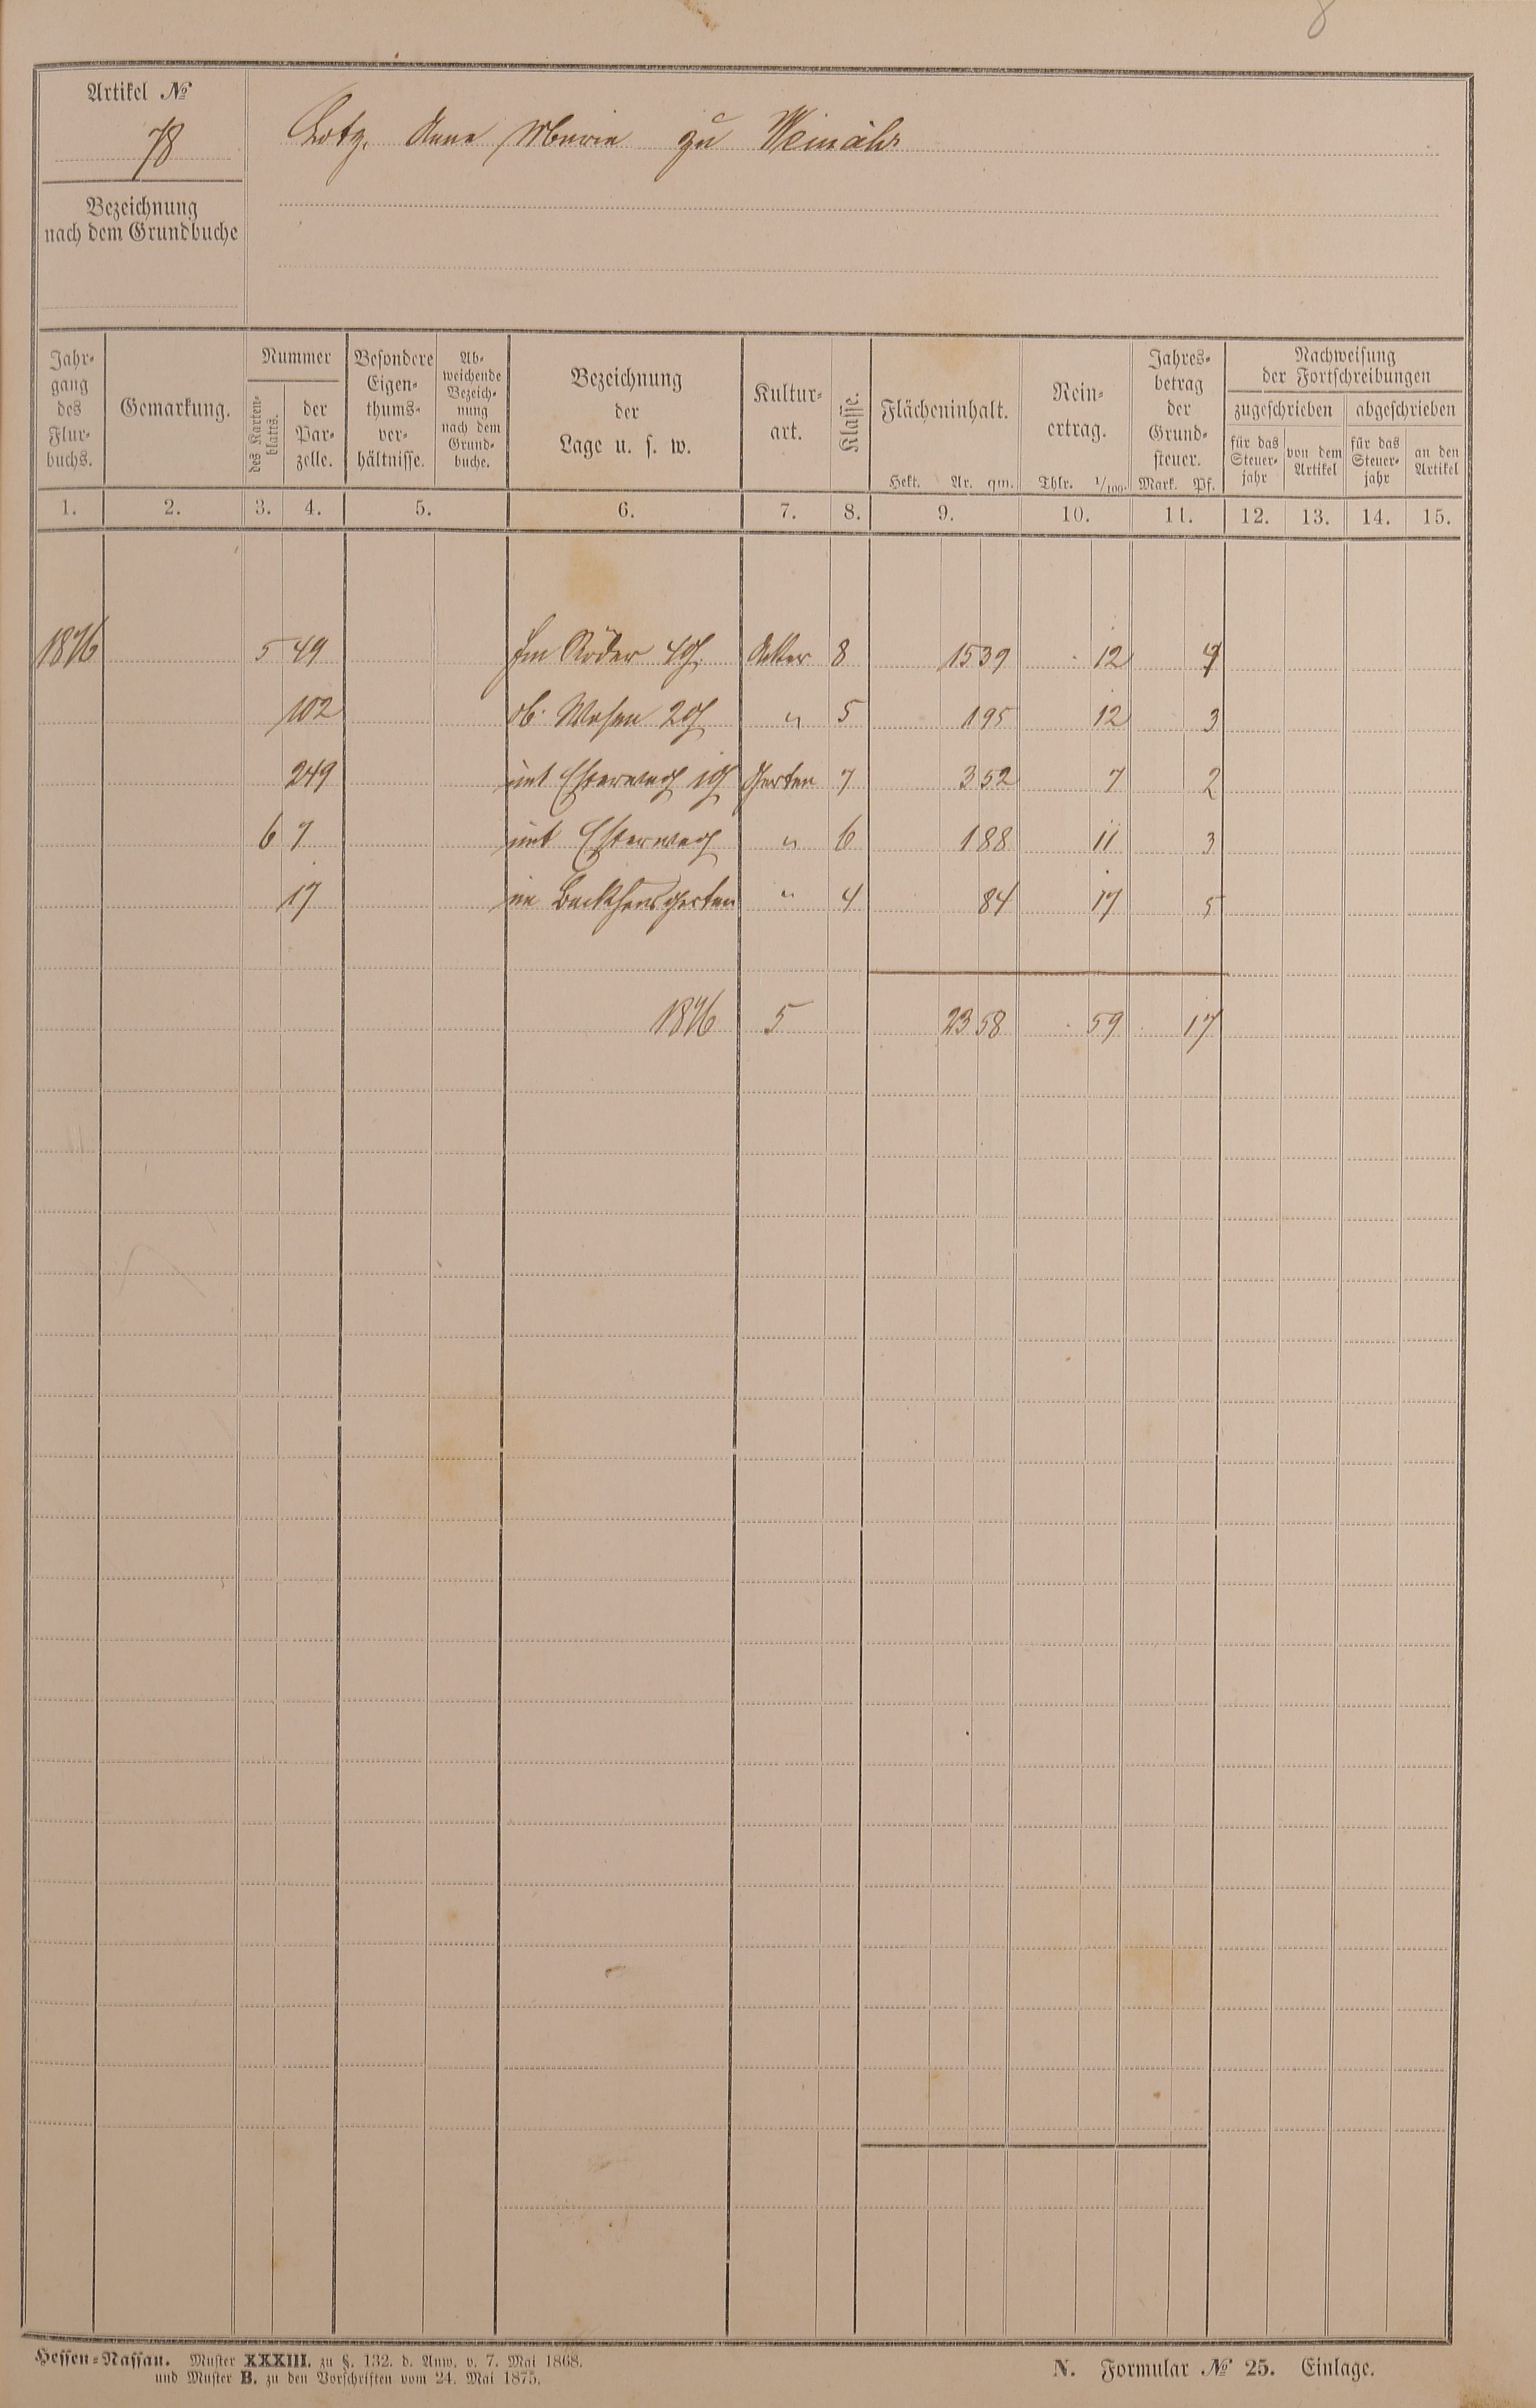 8
Artikel № 
78
Lotz, Anna Maria zu Weinähr
Bezeichnung
nach dem Grundbuche
Jahr-
gang
des
Flur-
buchs.
Gemarkung.
Nummer
des Karten-
blatts.
der
Par-
zelle.
Besondere
Eigen-
thums-
ver-
hältnisse.
Ab-
weichende
Bezeich-
nung
nach dem
Grund-
buche.
Bezeichnung
der
Lage u. s. w.
Kultur-
art.
Klasse.
Flächeninhalt.
Hekt. Ar. qm.
Rein-
ertrag.
Thlr. 1/100.
Jahres-
betrag
der
Grund-
steuer.
Mark. Pf.
Nachweisung
der Fortschreibungen
zugeschrieben abgeschrieben
für das
Steuer-
jahr
von dem
Artikel
für das
Steuer-
jahr
an den
Artikel
1. 2. 3. 4. 5. 6. 7. 8. 9. 10. 11. 12. 13. 14. 15.
1876 5 49 Im Röder 4 Acker 8 15 39 12 4
102 ob. 2 " 5 1 95 12 3
249 Garten 7 3 52 7 2
6 7 " 6 1 88 11 3
17 im Backhausgarten " 4 84 17 5
1876 5 23 58 59 17
Hessen-Nassau. Muster XXXIII. zu §. 132. d. Anw. v. 7. Mai 1868.
und Muster B. zu den Vorschriften vom 24. Mai 1875.
N. Formular № 25. Einlage.